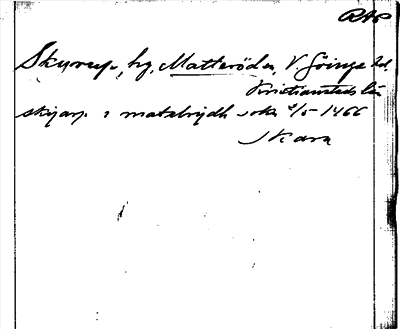 RAP
Skyrup, hg, Matteröds, V Göinge hd.
Kristianstads län
skyarp i matabrydh sokn 2/5 1466
Skara